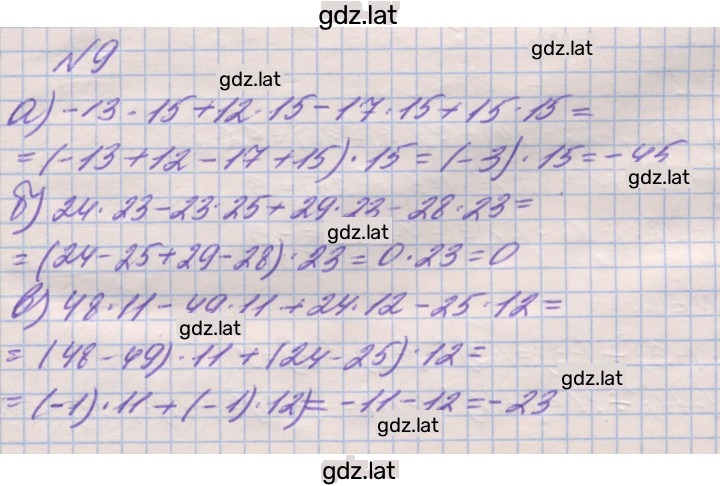 gdz.lat
№9
gdz.lat
gdz.lat
а) -13 · 15 + 12 · 15 - 17 · 15 + 15 · 15 =
= (-13 + 12 - 17 + 15) · 15 = (-3) · 15 = -45
gdz.lat
б) 24 · 23 - 23 · 25 + 29 · 23 - 28 · 23 =
gdz.lat
= (24 - 25 + 29 - 28) · 23 = 0 · 23 = 0
в) 48 · 11 - 49 · 11 + 24 · 12 - 25 · 12 =
gdz.lat
= (48 - 49) · 11 + (24 - 25) · 12 =
gdz.lat
= (-1) · 11 + (-1) · 12) = -11 - 12 = -23
gdz.lat
gdz.lat